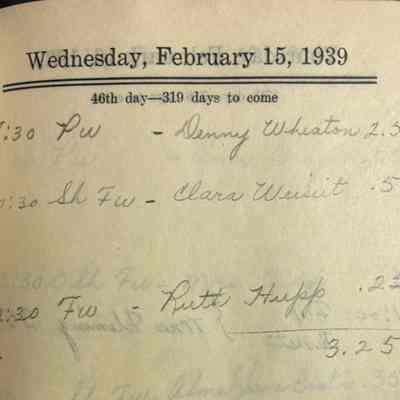 Wednesday, February 15, 1939
46th day—319 days to come
:30 Pw - Denny Wheaton 2.5
:30 Sh Fw - Clara .5
:30 Fw - Ruth Hupp .25
3.25